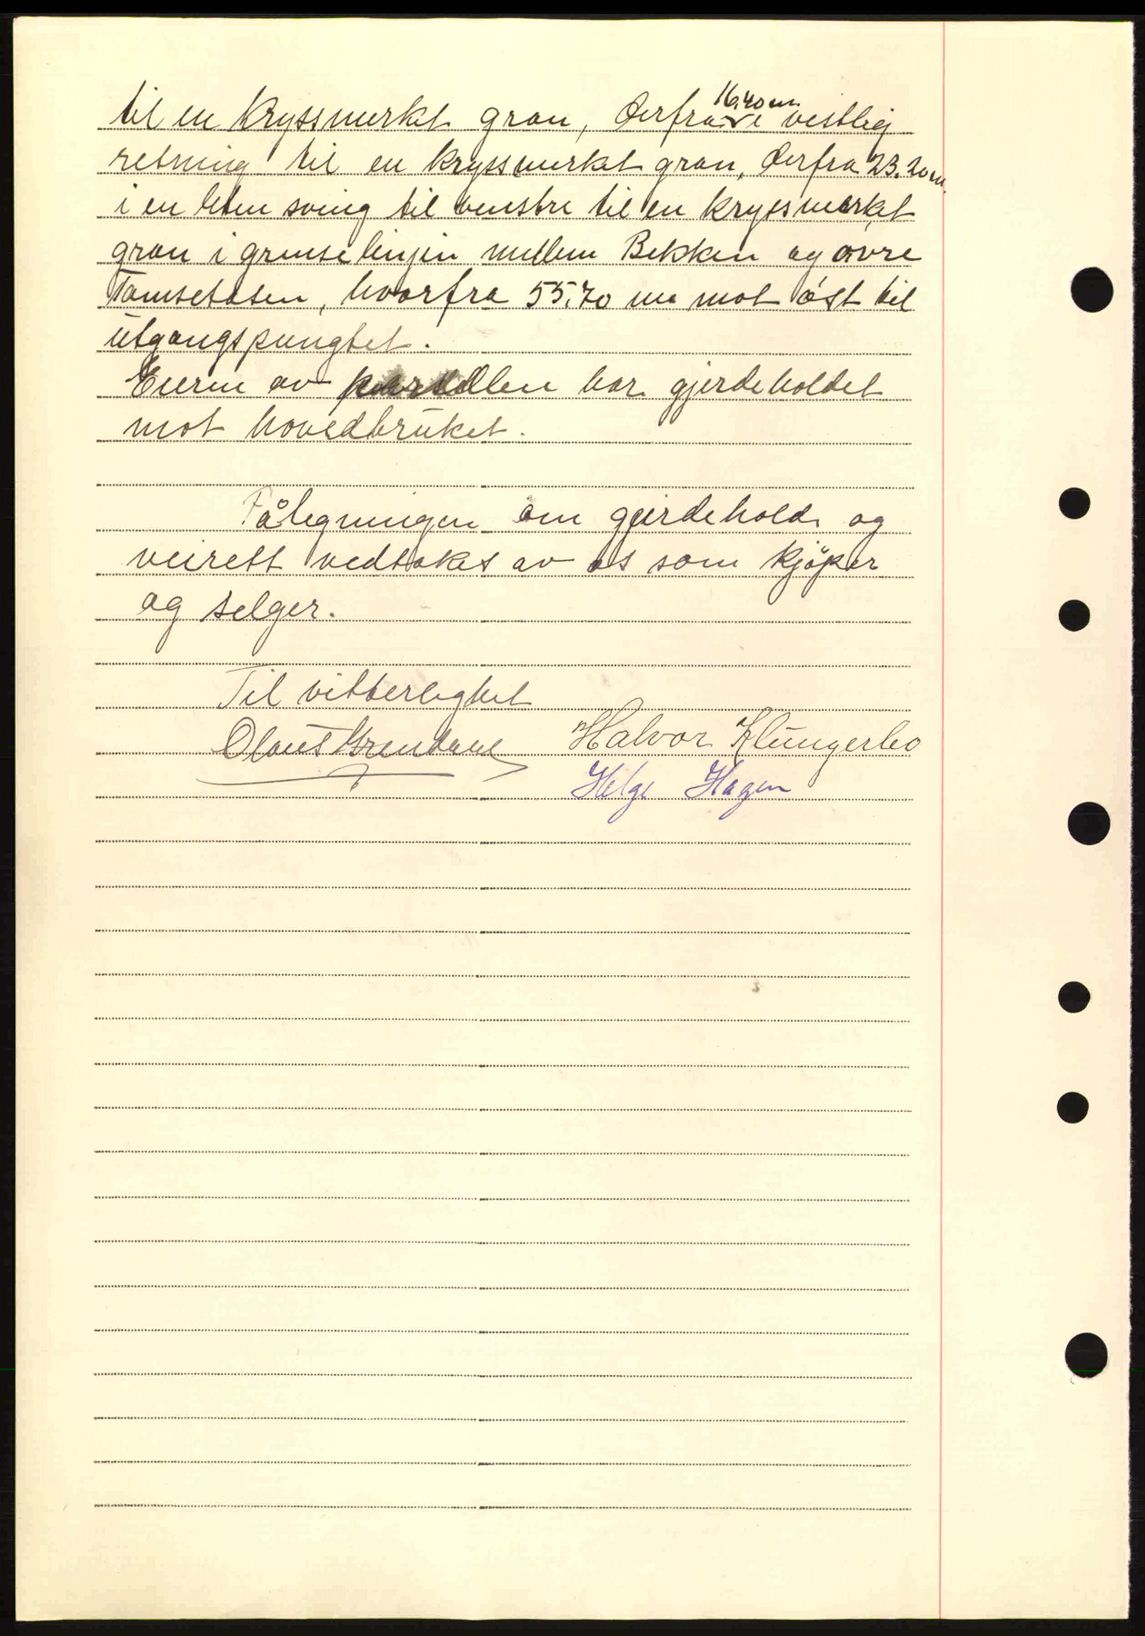 til en kryssmerket gran, derfra 16.40 m i vestlig
retning til en kryssmerket gran, derfra 23.20 m.
i en liten sving til venstre til en kryssmerket
gran i grenselinjen mellem Bekken og øvre
hvorfra 55.70 m mot øst til
utgangspungtet.
Eieren av parsellen har gjerdeholdet
mot hovedbruket.
Påtegningen om gjerdehold og
veirett vedtokes av os som kjøper
og selger.
Til vitterlighet
Halvor Klungerbo
Helge Hagen